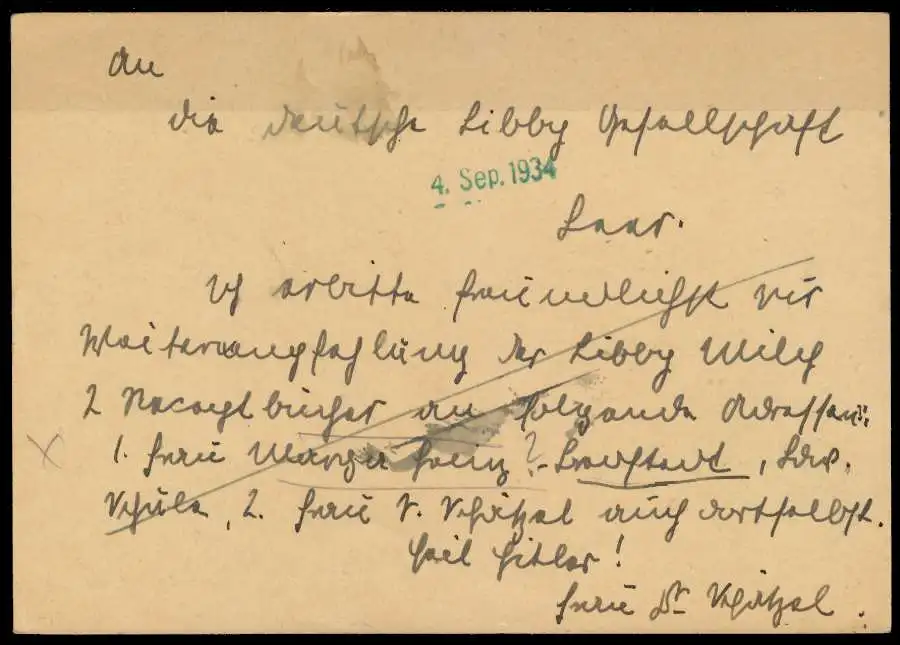 An
die deutsche Libby Gesellschaft
4. Sep. 1934
Leer.
Ich erbitte freundlichst zur
Weiterempfehlung der Libby Milch
2 Rezeptbücher an folgende Adressen:
1. Frau Marga ? - , Ldw.
Schule, 2. Frau V. Schätzel auch dortselbst.
Heil Hitler!
Frau Dr Schätzel.